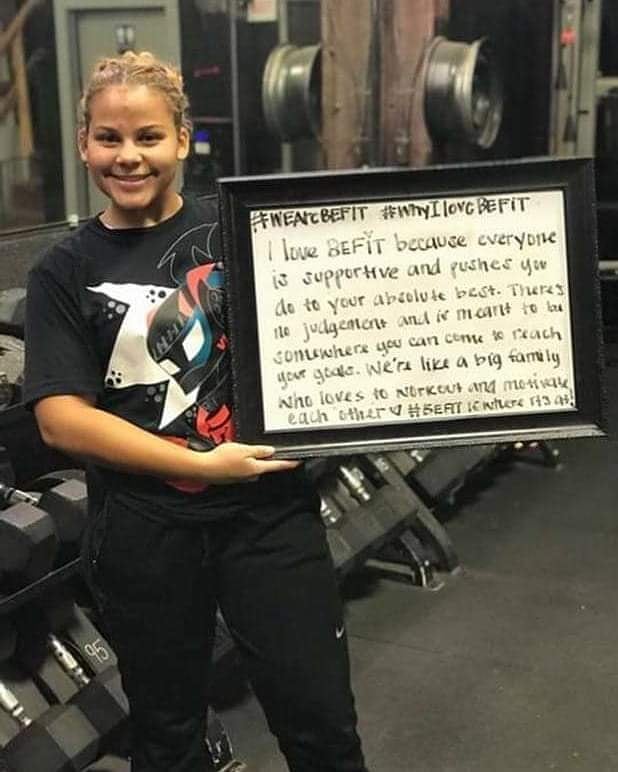 #WEAreBEFIT #WhyIloveBEFIT
I love BEFIT because everyone
is supportive and pushes you
do to your absolute best. There's
no judgement and is meant to be
somewhere you can come to reach
your goals. We're like a big family
who loves to workout and motivate
each other ♡ #BEFIT is where it's at!
95